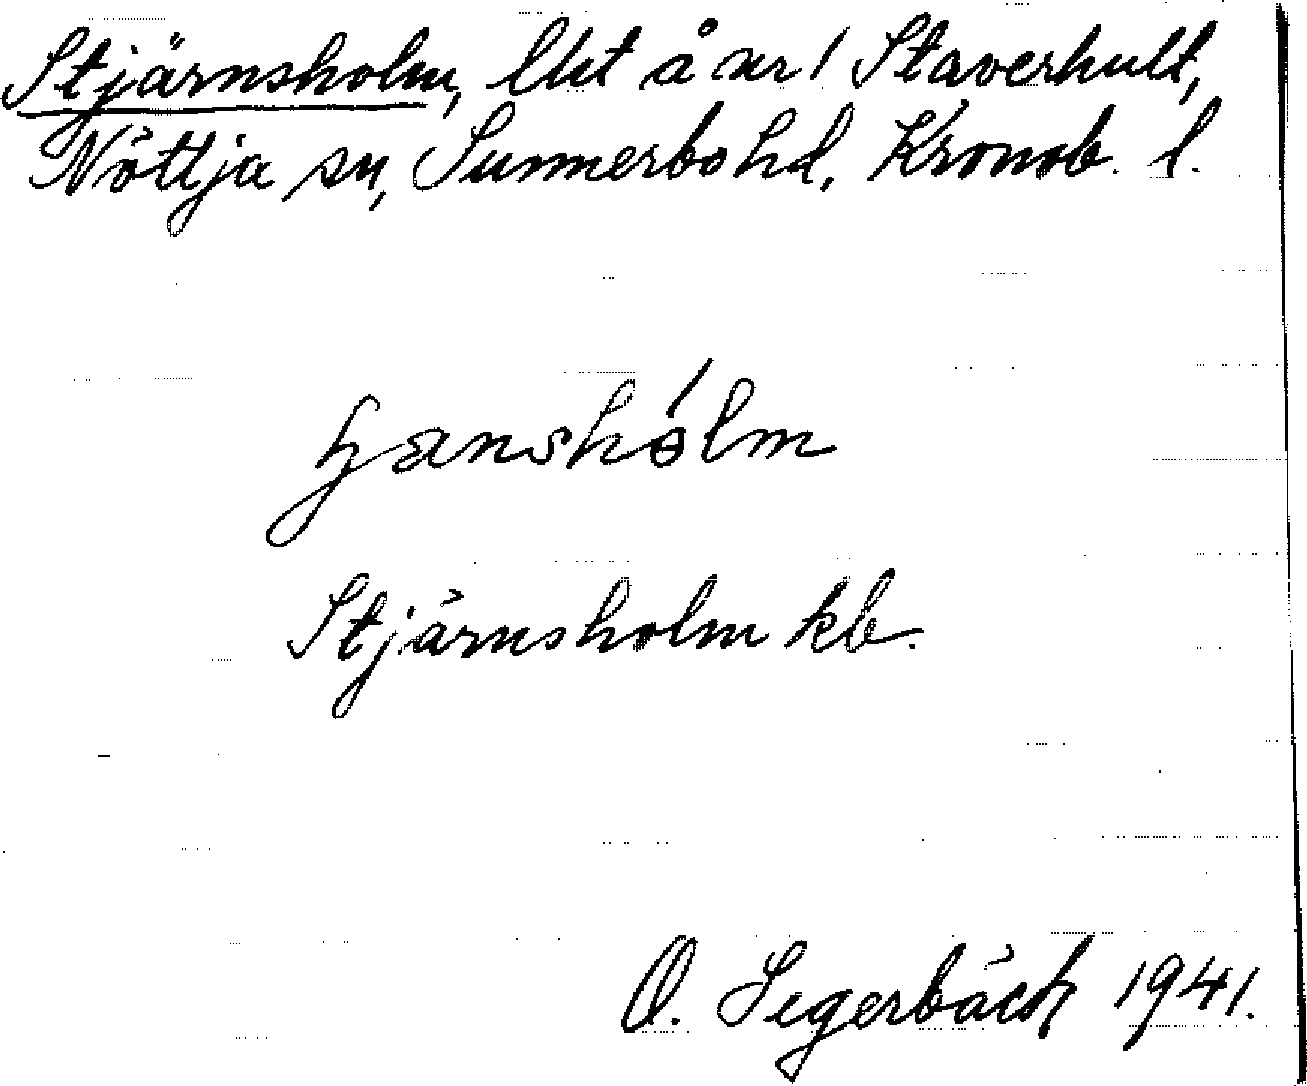 Stjärnsholm, lht å nr 1 Staverhult,
Nöttja sn, Sunnerbo hd, Kronob. l.
ɧanshólm
Stjärnsholm kb.
O. Segerbäck 1941.